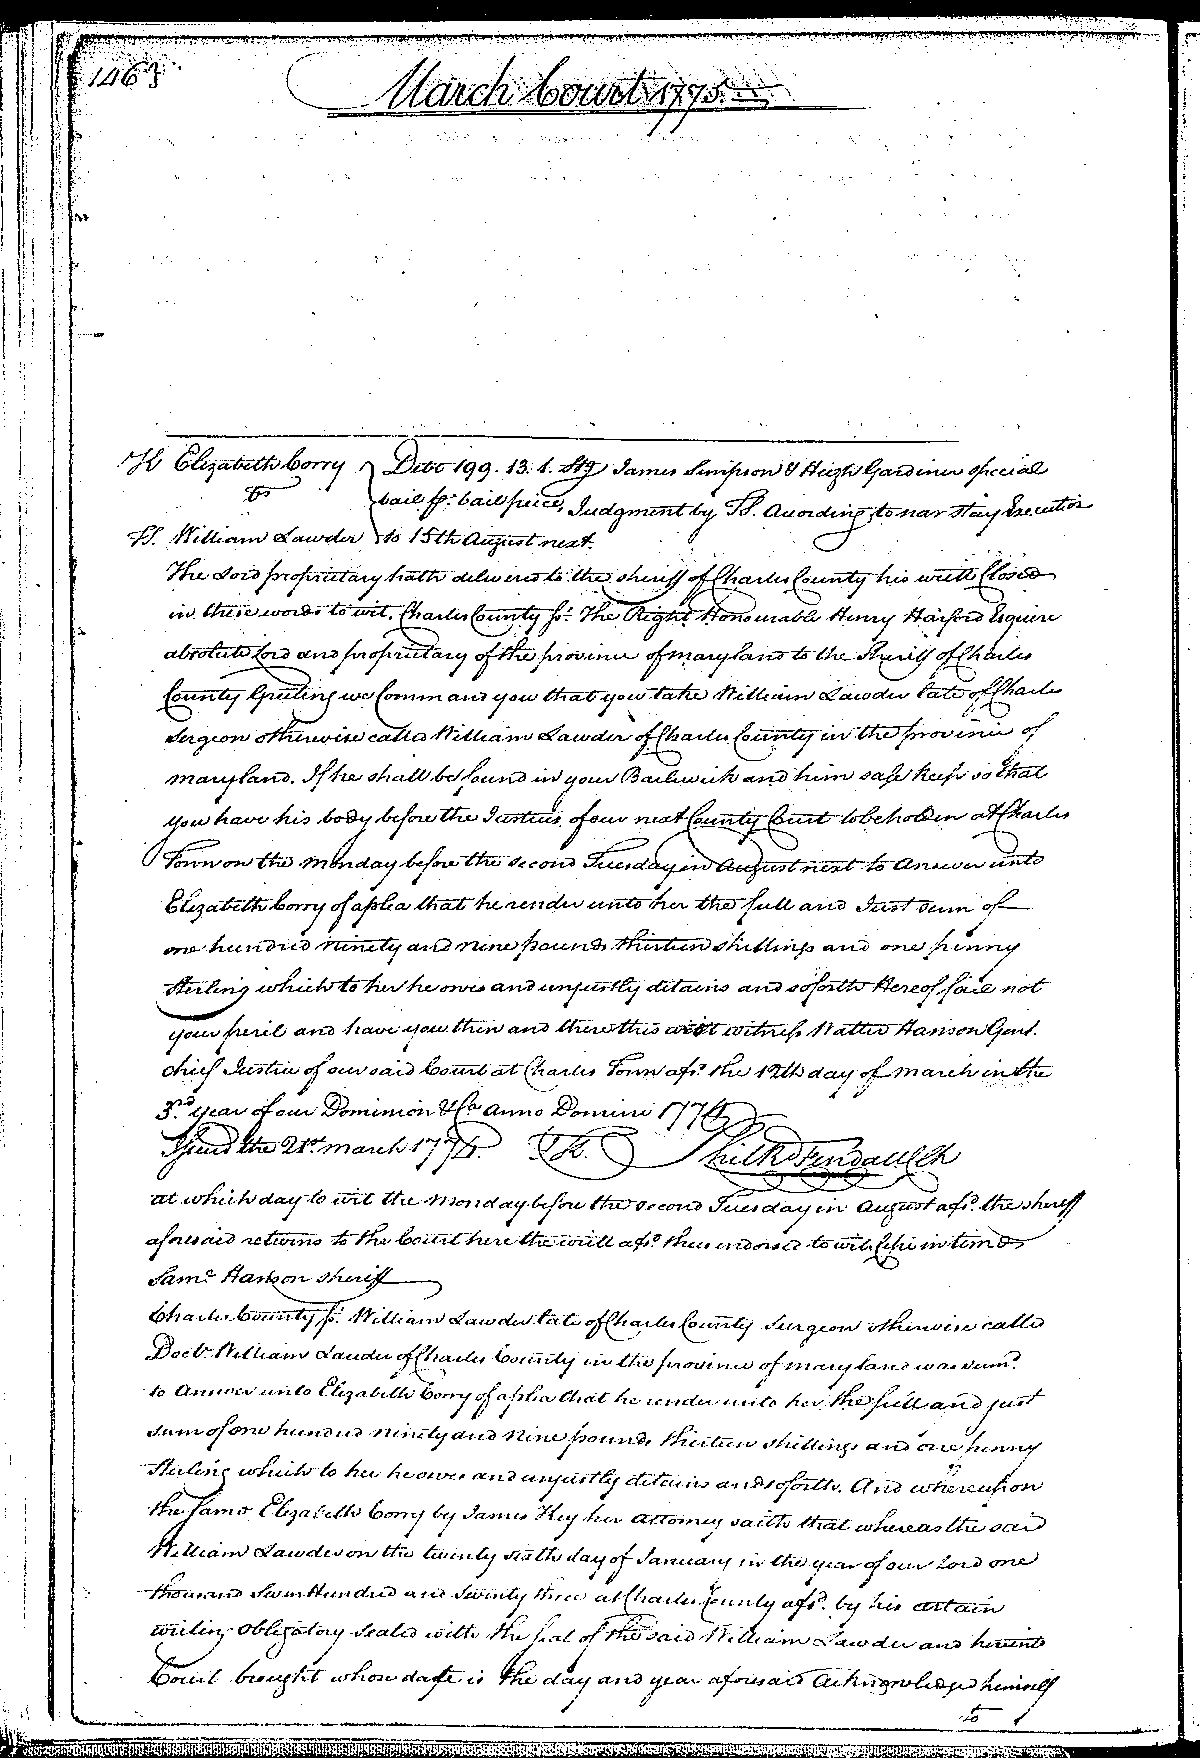 1463
March Court 1775
K Elizabeth Corry Debt 199. 13. 1. Stg James Simpson & Hugh Gardiner special
vs bail pr. bail piece, Judgment by according to nar stay Execution
William Lawder to 15th August next.
The Lord proprietary hath delivered to the sheriff of Charles County his writt Closed
in these words to wit, Charles County ss. The Right Honourable Henry Harford Esquire
absolute Lord and proprietary of the province of maryland to the Sheriff of Charles
County Greeting we Command you that you take William Lawder late of Charles
Surgeon otherwise called William Lawder of Charles County in the province of
maryland. If he shall be found in your Bailiwick and him safe keep so that
you have his body before the Justices of our next County Court to be holden at Charles
Town on the Monday before the second Tuesday in August next to Answer unto
Elizabeth Corry of a plea that he render unto her the full and Just sum of
one hundred ninety and nine pounds thirteen shillings and one penny
sterling which to her he owes and unjustly detains and so forth Hereof fail not
your peril and have you then and there this writ witness Walter Hanson Gent.
chief Justice of our said Court at Charles Town afsd. the 12th day of march in the
3rd. year of our Dominion &Ca anno Domini 1774
Issued the 21st march 1774. Philkd Fendall Clk
at which day to wit the Monday before the second Tuesday in August afsd. the sheriff
aforesaid returns to the Court here the writt afsd. thus endorsed to wit,
Saml. Hanson sheriff
Charles County ss. William Lawder late of Charles County Surgeon otherwise called
Doctr. William Lawder of Charles County in the province of maryland was sumd.
to Answer unto Elizabeth Corry of a plea that he render unto her the full and just
sum of one hundred ninety and nine pounds thirteen shillings and one penny
sterling which to her he owes and unjustly detains and so forth. And whereupon
the same Elizabeth Corry by James Key her attorney saith that whereas the said
William Lawder on the twenty sixth day of January in the year of our Lord one
thousand Seven Hundred and Seventy three at Charles County afsd. by his certain
writing obligatory sealed with the seal of the said William Lawder and here into
Court brought whose date is the day and year aforesaid acknowledged himself
to